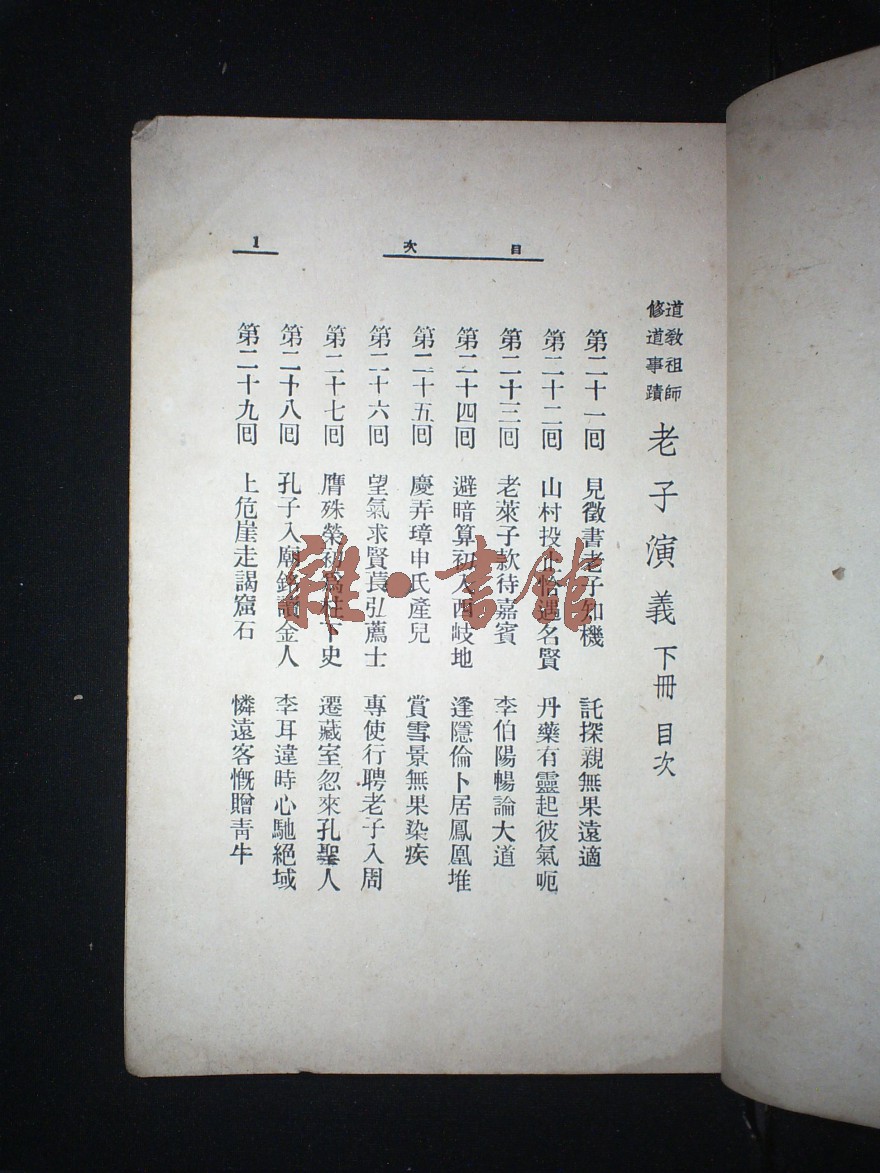 目次
1
道教祖師
修道事蹟
老子演義 下冊 目次
第二十一回 見徵書老子知機 託探親無果遠適
第二十二回 山村投止恰遇名賢 丹藥有靈起彼氣呃
第二十三回 老萊子款待嘉賓 李伯陽暢論大道
第二十四回 避暗算初入西岐地 逢隱倫卜居鳳凰堆
第二十五回 慶弄璋申氏產兒 賞雪景無果染疾
第二十六回 望氣求賢萇弘薦士 專使行聘老子入周
第二十七回 膺殊榮初爲柱下史 遷藏室忽來孔聖人
第二十八回 孔子入廟銘讀金人 李耳違時心馳絕域
第二十九回 上危崖走謁窳石 憐遠客慨贈青牛
雜·書館